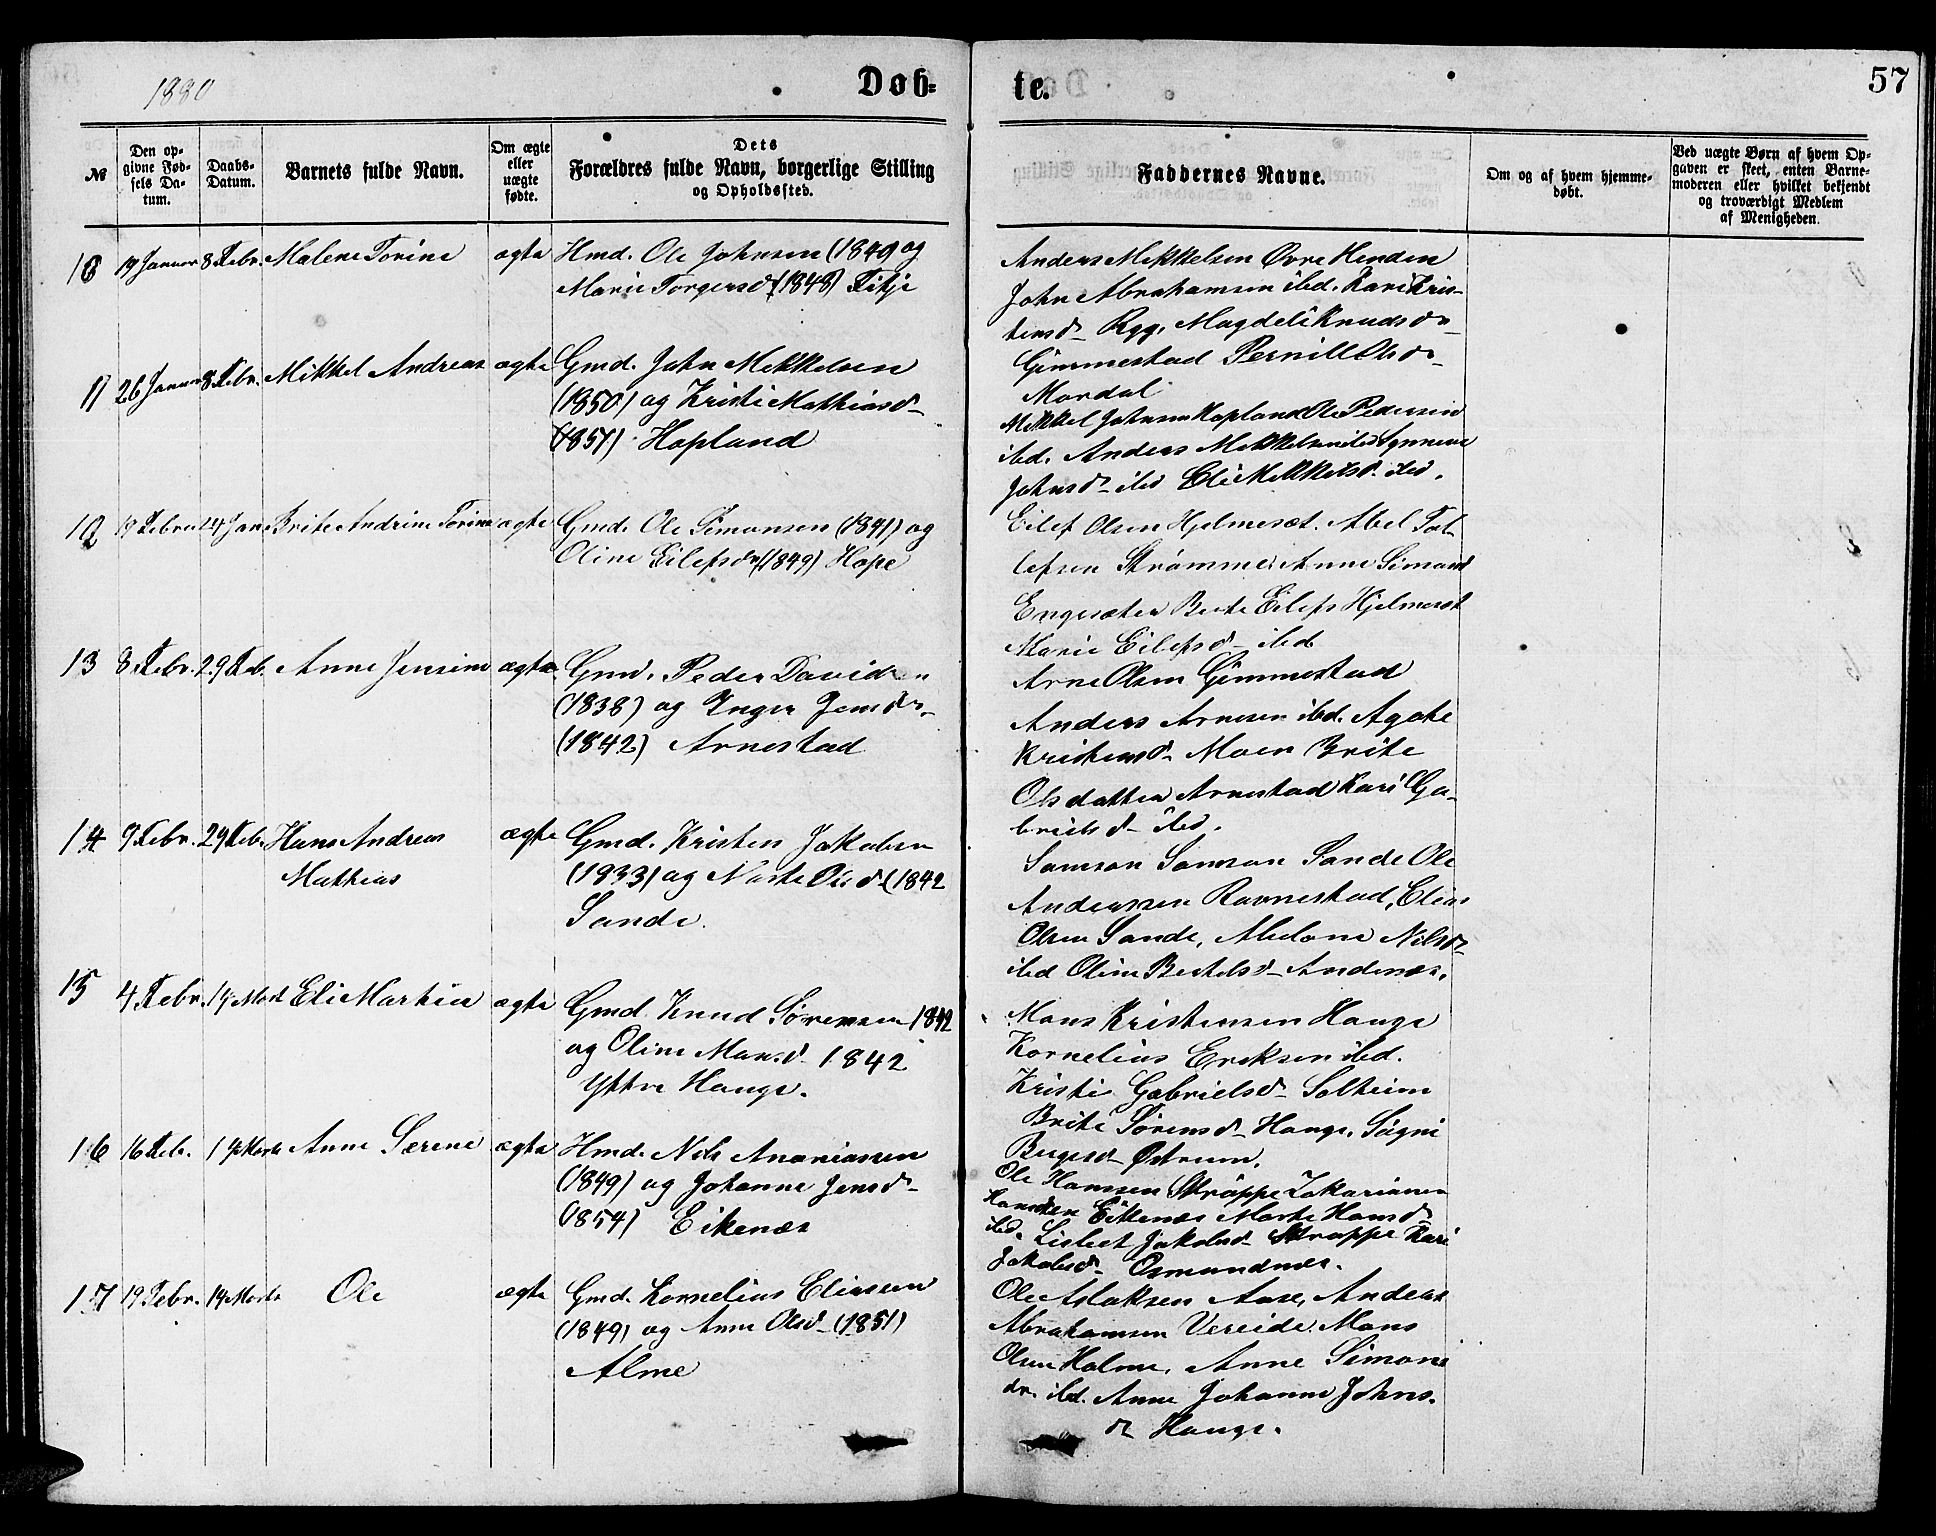 1880
Døb=
te.
57
№
Den op-
givne Fød-
sels Da-
tum.
Daabs-
Datum.
Barnets fulde Navn.
Om ægte
eller
uægte
fødte.
Dets
Forældres fulde Navn, borgerlige Stilling
og Opholdssted.
Faddernes Navne.
Om og af hvem hjemme-
døbt.
Ved uægte Børn af hvem Op-
gaven er skeet, enten Barne-
moderen eller hvilket bekjendt
og troværdigt Medlem
af Menigheden.
10 19 Januar 8 Febr. Malene Torine ægte Hmd. Ole Johnsen (1849 og
Marie Torgersd (1848) Fitje
Anders Mikkelsen Øvre Henden
John Abrahamsen ibd. Kari Kris-
tensdr Ryg, Magdeli Knudsdr
Gimmestad Pernill Olsdr
Mardal
11 26 Januar 8 Febr. Mikkel Andreas ægte Gmd. John Mikkelsen
(1850) og Kristi Mathiasdr
(1857) Hopland
Mikkel Johnsen Hopland Ole Pedersen
ibd. Anders Mikkelsen ibd Synneve
Johnsdr ibd Eli Mikkelsd. ibd.
12 Febru 24 Jan Brite Andrine Torine ægte Gmd. Ole Simonsen (1841) og
Oline Eilefsdr (1849) Hope
Eilef Olsen Hjelmeset. Abel Tol-
lefsen Strømme, Anne Simonsd
Engesæter Berte Eilefs Hjelmeset
Marie Eilefsdr ibd
13 8 Febr. 29 Feb. Anne Jensine ægte Gmd. Peder Davidsen
(1838) og Inger Jensdr
(1842) Arnestad
Arne Olsen Gimmestad
Anders Arnesen ibd. Agate
Kristensdr Moen Brite
Olsdatter Arnestad Kari Ga-
brielsdr ibd.
14 9 Febr. 29 Feb. Hans Andreas
Mathias
ægte Gmd. Kristen Jakobsen
(1833) og Marte Olsd (1842
Sande.
Samson Samson Sande Ole
Anderssen Ravnestad, Elias
Olsen Sande, Abelone Nilsdr
ibd Oline Bertelsdr Andenæs.
15 4 Febr. 14 Marts Eli Martine ægte Gmd. Knud Sørensen 1842
og Oline Mansd. 1842
Yttre Hauge.
Mons Kristensen Hauge
Kornelius Eriksen ibd.
Kristi Gabrielsdr Solheim
Brite Sørensdr Hauge. Signi
Østrem.
16 16 Feb. 14 Marts Anne Serene ægte Hmd. Nils Ananiassen
(1849) og Johanne Jensdr
(1854) Eikenæs
Ole Hanssen Skrappe Zakarianen
Hansen Eikenæs Marte Hansdr
ibd. Lisbet Jakobsdr Skrappe Kari
Jakobsdr Osmundnes.
17 19 Febr. 14 Marts Ole ægte Gmd. Kornelius Eliasen
(1849) og Anne Olsdr (1851)
Alme
Ole Aslaksen Aase, Andeas
Abrahamsen Vereide. Mons
Olsen Holme, Anne Simons
dr. ibd. Anne Johanne Johns-
dr Hauge.